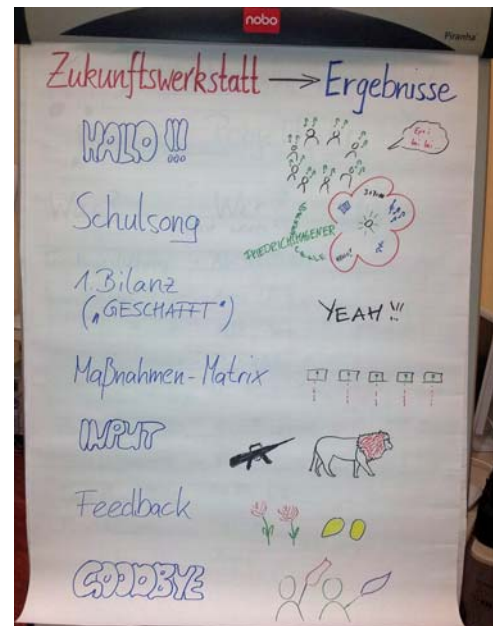 nobo
Piranha
Zukunftswerkstatt → Ergebnisse
HALLO !!!
Schulsong
FRIEDRICHSHAGENER
1. Bilanz
("GESCHAFFT") YEAH !!!
Maßnahmen-Matrix
INPUT
Feedback
GOODBYE